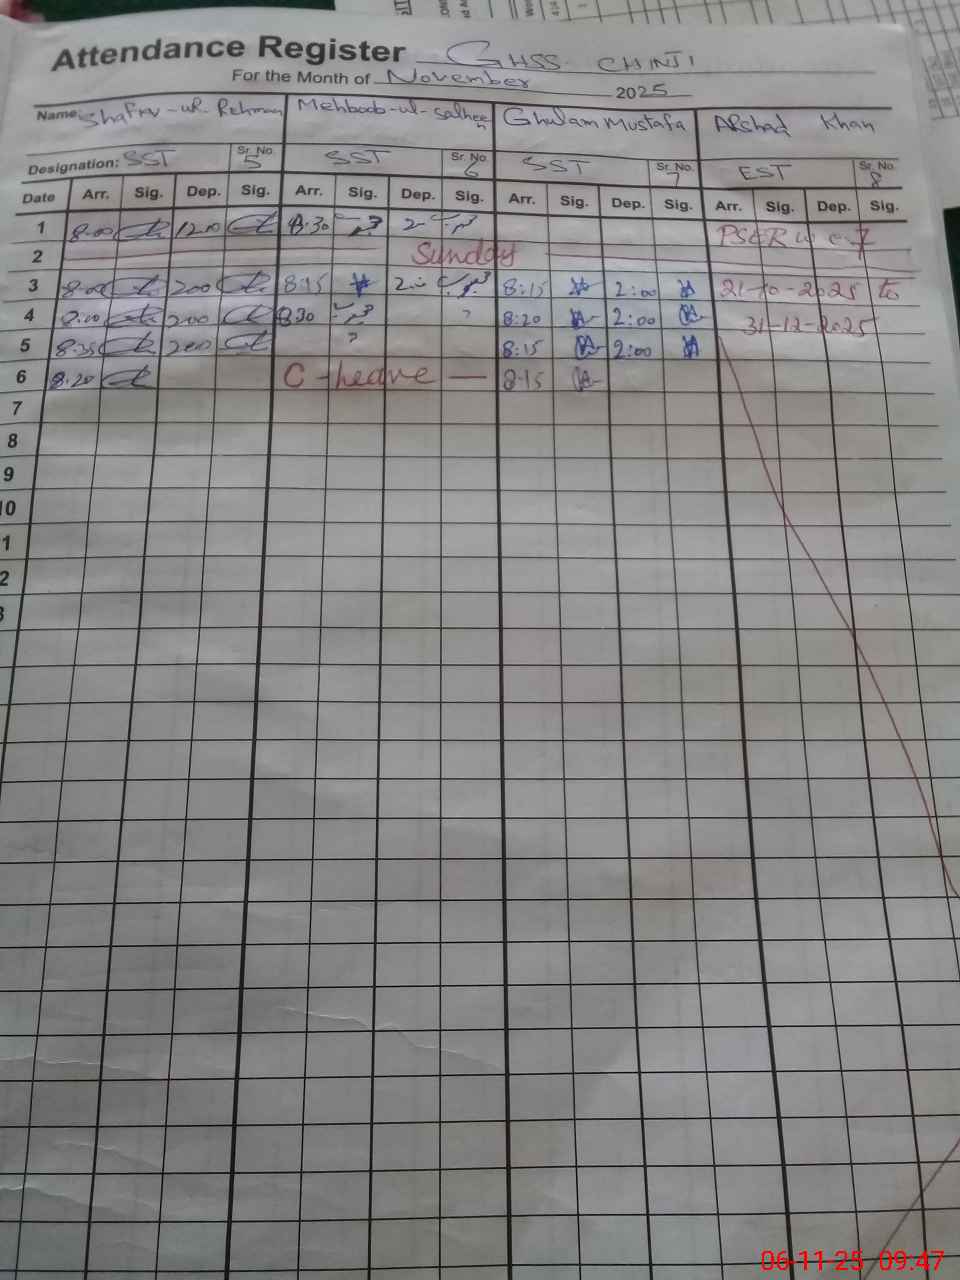 Attendance Register GHSS CHINJI
For the Month of November 2025
Name: Mehboob-ul-Salheen Ghulam Mustafa Arshad Khan
Designation: SST Sr. No. 5 SST Sr. No. 6 SST Sr. No. 7 EST Sr. No. 8
Date Arr. Sig. Dep. Sig. Arr. Sig. Dep. Sig. Arr. Sig. Dep. Sig. Arr. Sig. Dep. Sig.
1 8:00 1200 8:30 2 PSER w.e.f
2 Sunday
3 8:00 200 8:15 2:00 8:15 2:00 21-10-2025 to
4 8:00 200 830 8:20 2:00 31-12-2025
5 8:25 200 8:15 2:00
6 8:20 C-leave 8:15
7
8
9
10
1
2
3
06-11-25 09:47